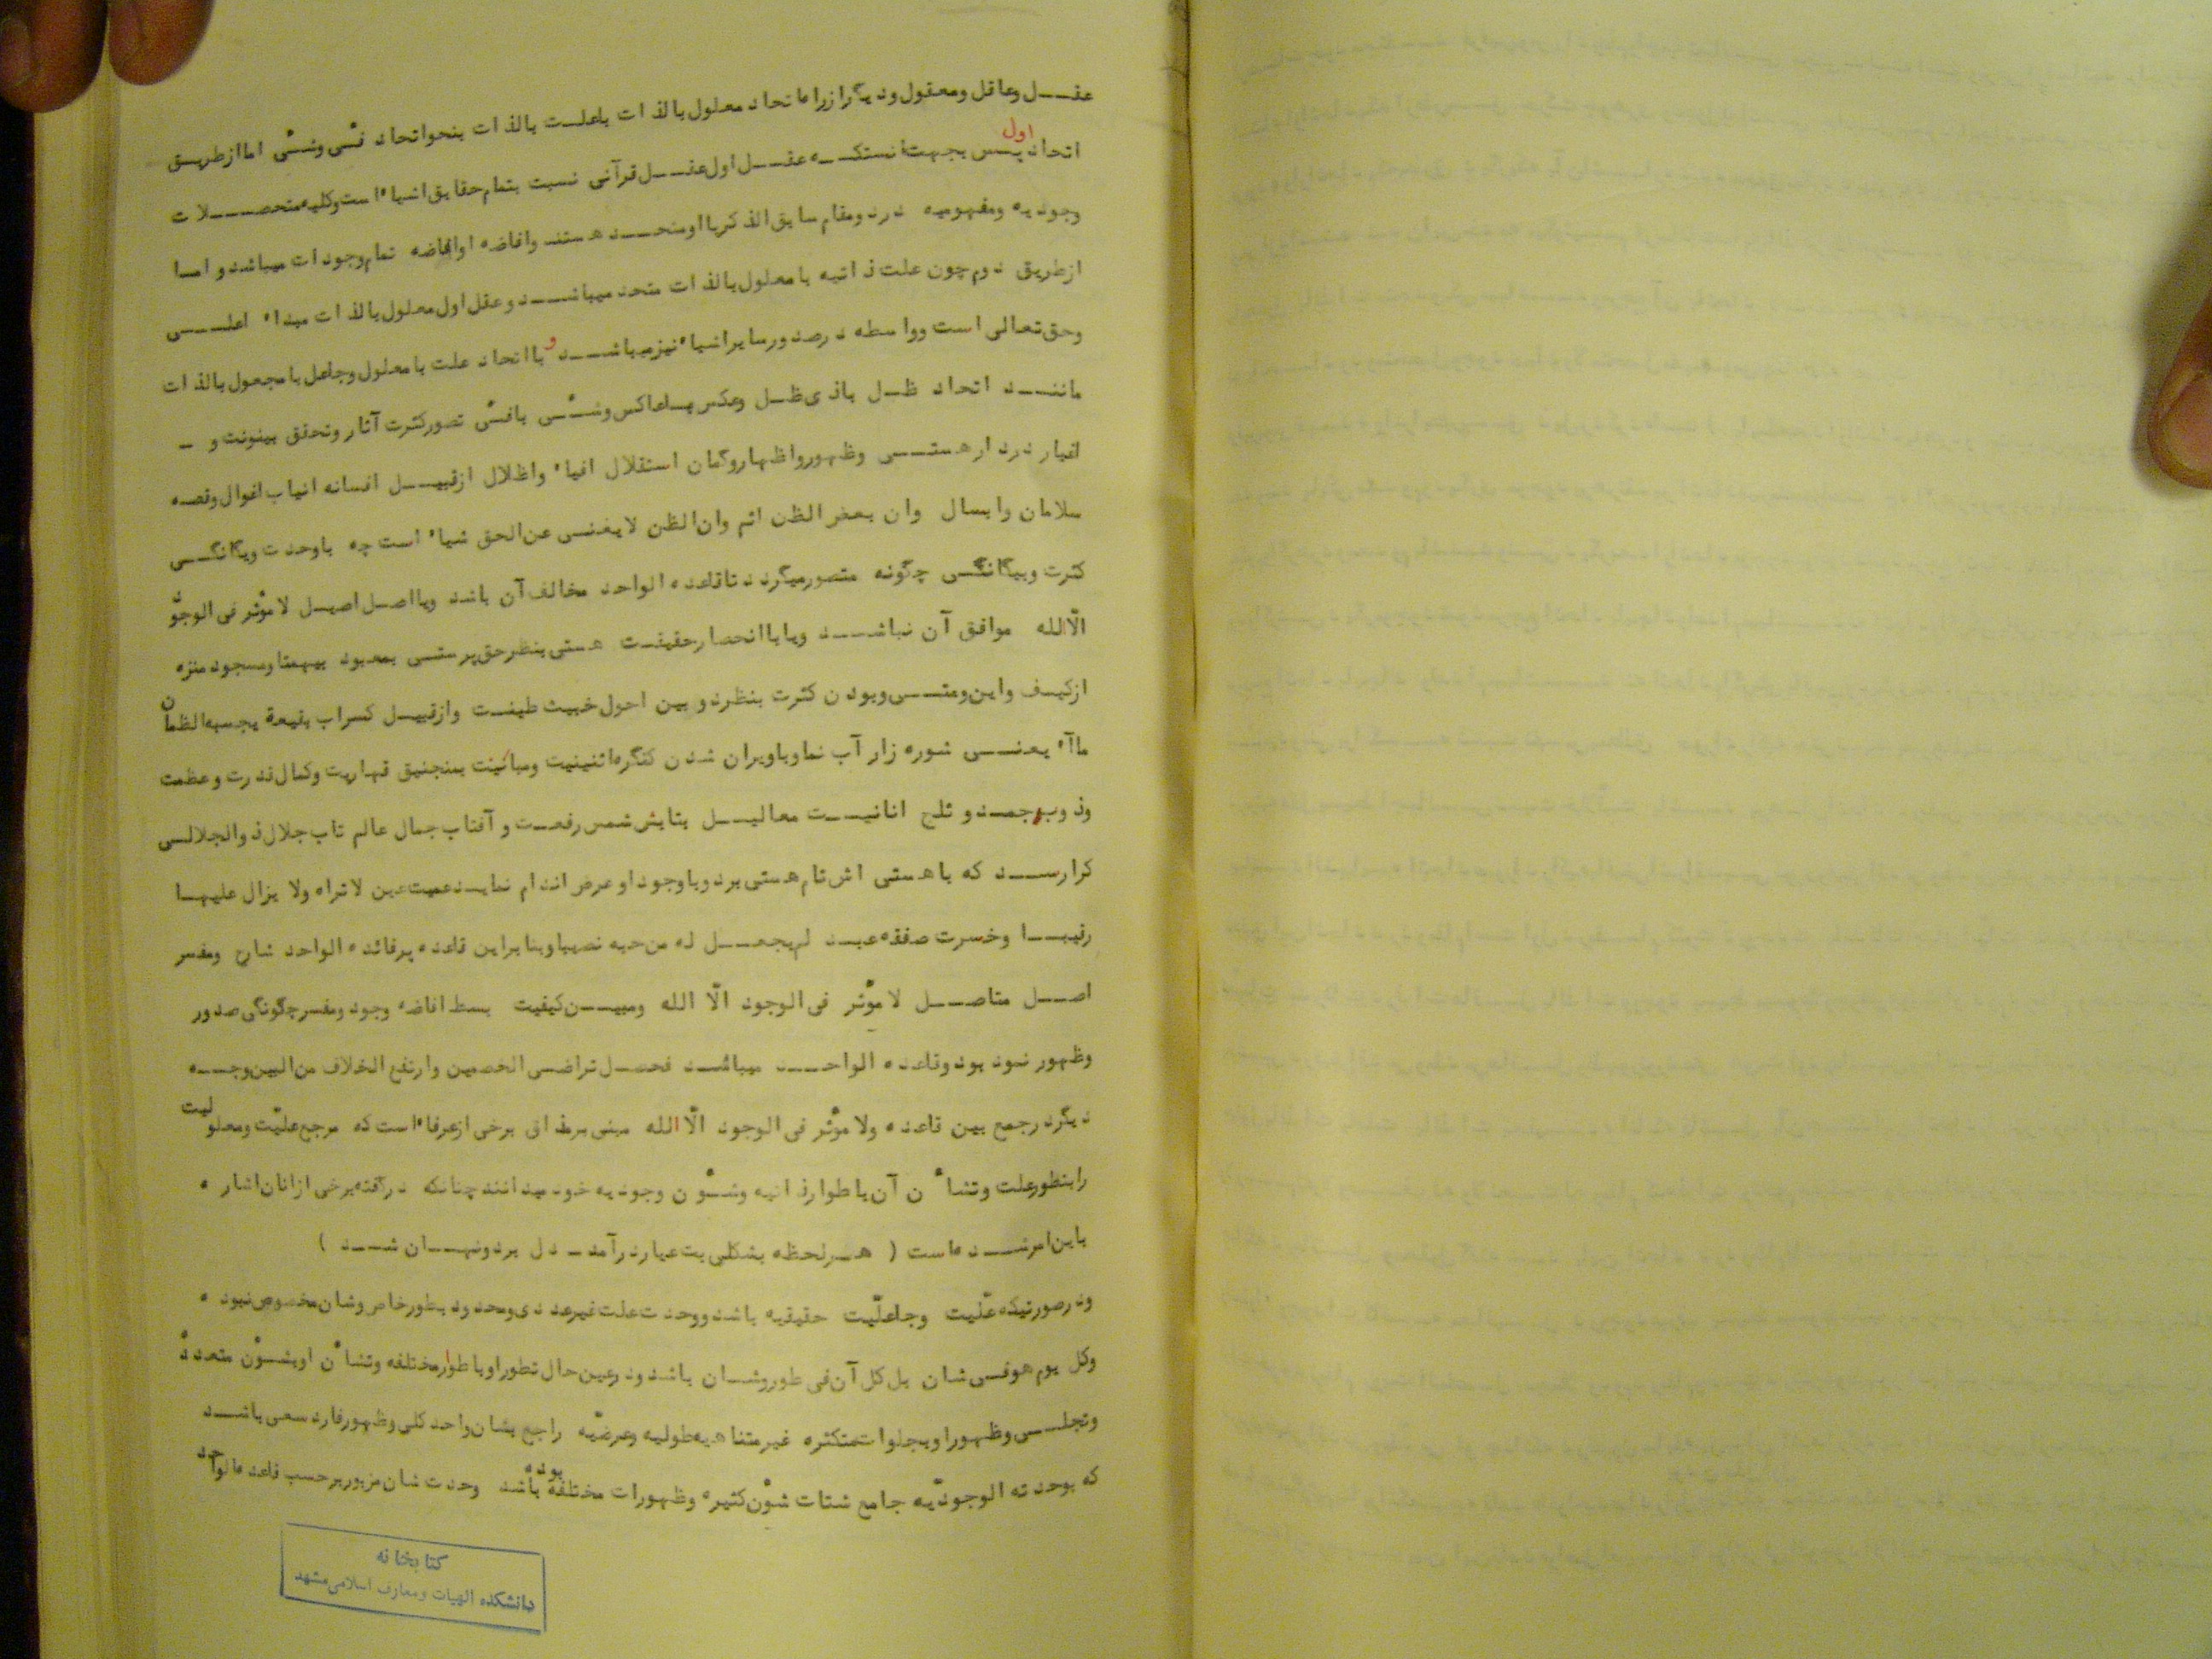 عقل و عاقل و معقول و دیگر از راه اتحاد معلول بالذات باعلت بالذات بنحو اتحاد فیء و شیء اما از طریق
اول
اتحاد پس بجهت انستکه عقل اول عقل قرآنی نسبت بتمام حقایق اشیاء است و کلیه متحصلات
وجودیه و مفهومیه در دو مقام سابق الذکر با او متحد هستند و افاضه او افاضه تمام وجودات میباشد و اما
از طریق دوم چون علت ذاتیه با معلول بالذات متحد میباشد و عقل اول معلول بالذات مبداء اعلی
وحق تعالی است و واسطه در صدور سایر اشیاء نیز میباشد و با اتحاد علت با معلول و جاعل با مجعول بالذات
مانند اتحاد ظل باذی ظل وعکس با عاکس و شیء بافیء تصور کثرت آثار و تحقق بینونت و -
اغیار در دار هستی وظهور و اظهار و گمان استقلال افیاء واظلال از قبیل افسانه انیاب اغوال و قصه
سلامان و ابسال وان بعض الظن اثم وان الظن لا یغنی عن الحق شیاء است چه با وحدت و یگانگی
کثرت و بیگانگی چگونه متصور میگردد تا قاعده الواحد مخالف آن باشد و با اصل اصیل لا مؤثر فی الوجود
الّا الله موافق آن نباشد و یا با انحصار حقیقت هستی بنظر حق پرستی بمعبود بیهمتا و مسجود منزه
از کیف و این و متی و بودن کثرت بنظر دو بین احول خبیث طینت و از قبیل کسراب بقیعة یحسبه الظمان
ماآء یعنی شوره زار آب نما و با ویران شدن کنگره اثنینیت و مبائنیت بمنجنیق قهاریت و کمال قدرت و عظمت
و ذوب جمد و ثلج انانیت معالیل بتابش شمس رفعت و آفتاب جمال عالم تاب جلال ذوالجلالی
کرا رسد که با هستی اش نام هستی برد و با وجود او عرض اندام نماید عمیت عین لا تراه ولا یزال علیها
رقیبا وخسرت صفقه عبد لم یجعل له من حبه نصیبا و بنابر این قاعده پر فائده الواحد شارح ومفسر
اصل متاصل لا مؤثر فی الوجود الّا الله ومبین کیفیت بسط افاضه وجود ومفسر چگونگی صدور
وظهور نمود بود و قاعده الواحد میباشد فحصل تراضی الخصمین وارتفع الخلاف من البین وجه
دیگر در جمع بین قاعده ولا مؤثر فی الوجود الّا الله مبنی بر مذاق برخی از عرفاء است که مرجع علیّت و معلولیت
را بتطور علت و تشاءن آن باطوار ذاتیه و شئون وجودیه خود میدانند چنانکه در گفته برخی از انان اشاره
باین امر شده است ( هر لحظه بشکلی بت عیار درآمد - دل برد و نهان شد )
و در صورتیکه علّیت و جاعلّیت حقیقیه باشد و وحدت علت غیر عددی و محدود بطور خاص و شان مخصوص نبوده
وکل یوم هو فی شان بل کل آن فی طور و شان باشد و در عین حال تطور او باطوار مختلفه و تشاءن او بشئون متعدده
و تجلی وظهور او بجلوات متکثره غیر متناهیه طولیه و عرضّیه راجع بشان واحد کلی وظهور فارد سعی باشد
که بوحدته الوجودّیه جامع شتات شئون کثیره وظهورات مختلفة بوده باشد وحدت شان مزبور بر حسب قاعده الواحد
کتابخانه
دانشکده الهیات و معارف اسلامی مشهد